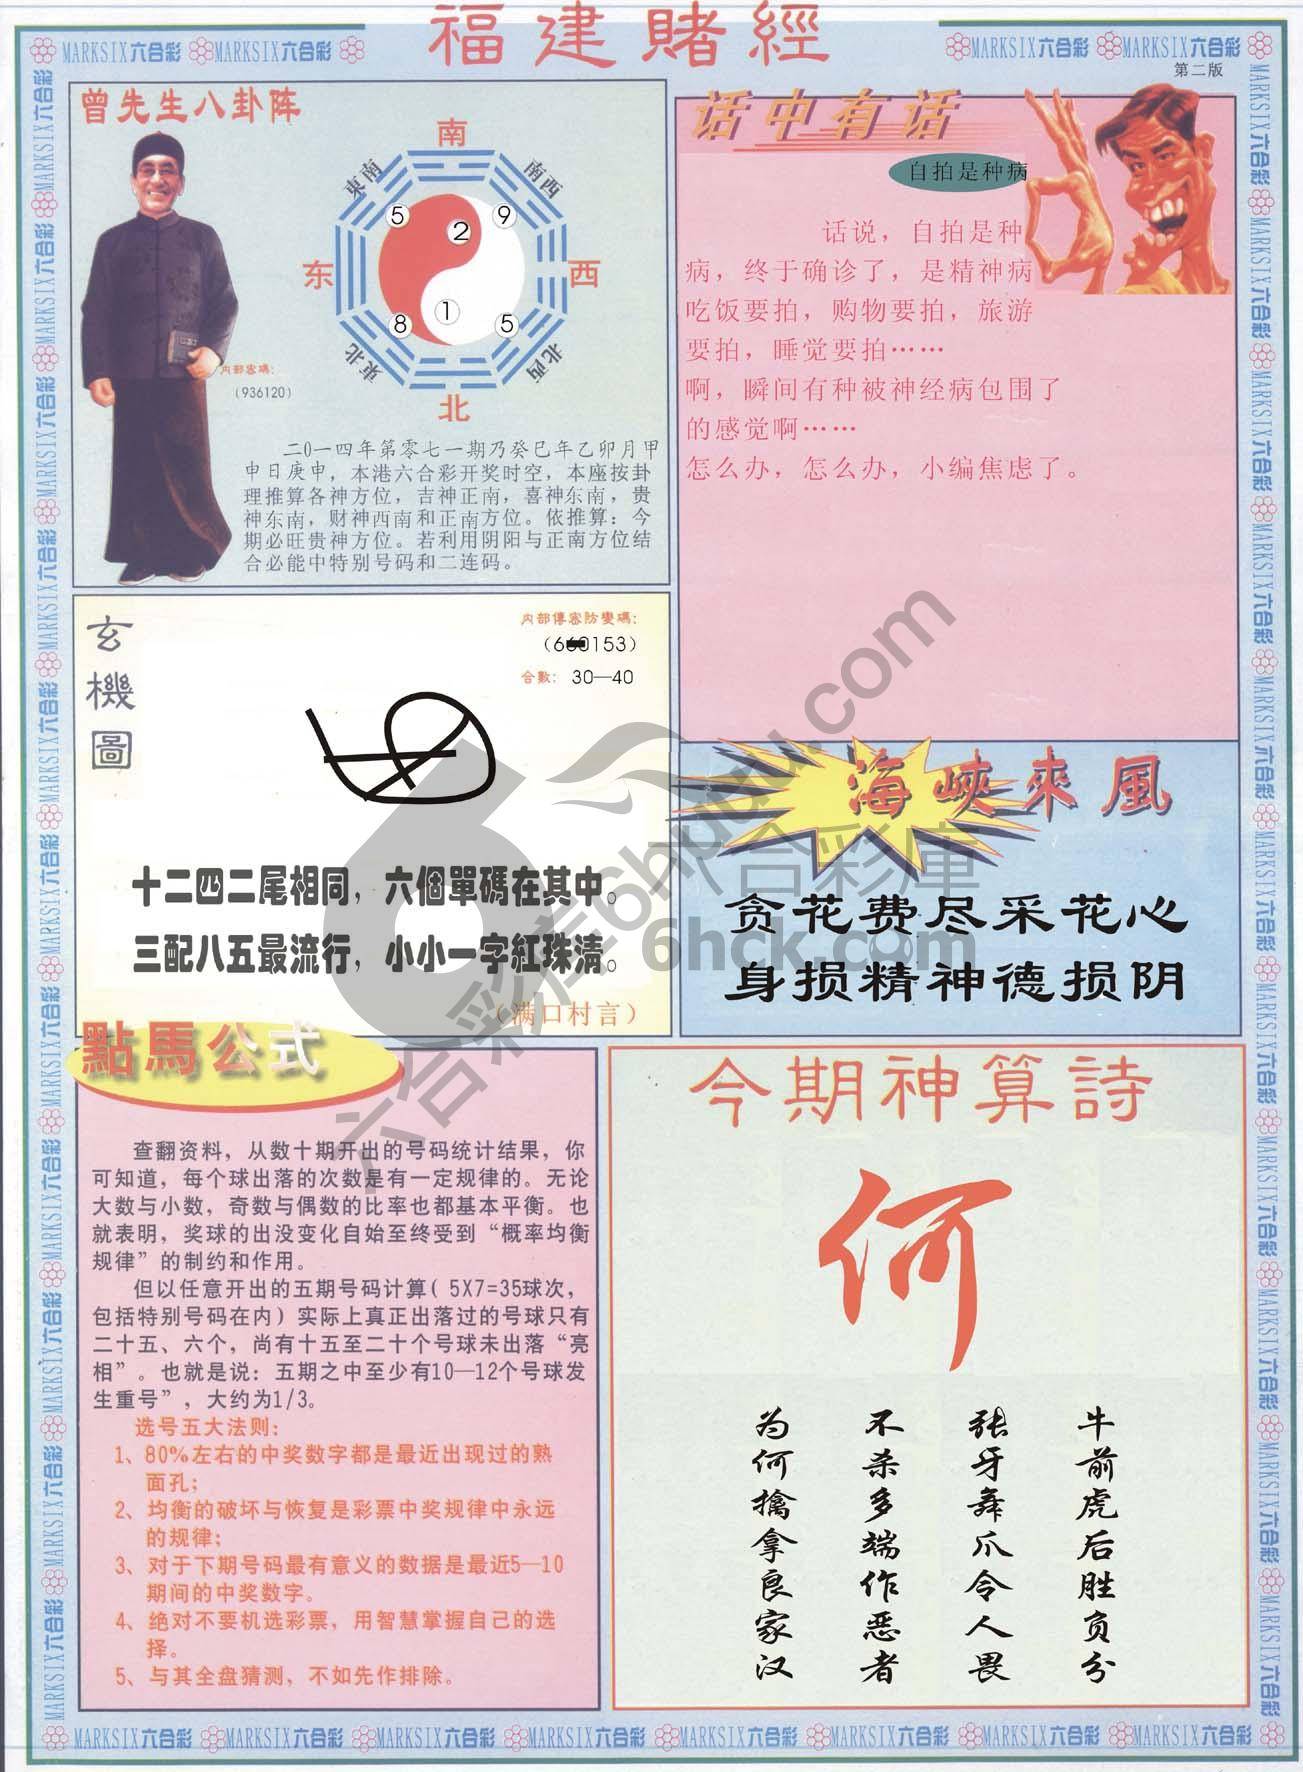 福建賭經
MARKSIX六合彩 MARKSIX六合彩
MARKSIX六合彩 MARKSIX六合彩
第二版
曾先生八卦阵
南
東南
南西
5
9
2
东
西
8
1
5
東北
北西
北
内部密碼:
(936120)
二0一四年第零七一期乃癸巳年乙卯月甲
申日庚申，本港六合彩开奖时空，本座按卦
理推算各神方位，吉神正南，喜神东南，贵
神东南，财神西南和正南方位。依推算：今
期必旺贵神方位。若利用阴阳与正南方位结
合必能中特别号码和二连码。
话中有话
自拍是种病
话说，自拍是种
病，终于确诊了，是精神病
吃饭要拍，购物要拍，旅游
要拍，睡觉要拍……
啊，瞬间有种被神经病包围了
的感觉啊……
怎么办，怎么办，小编焦虑了。
玄機圖
内部傳密防變碼:
(660153)
合數: 30—40
十二四二尾相同，六個單碼在其中。
三配八五最流行，小小一字紅珠清。
（满口村言）
海峽來風
贪花费尽采花心
身损精神德损阴
六合彩库6hpudu.com
六合彩庫
6hck.com
點馬公式
查翻资料，从数十期开出的号码统计结果，你
可知道，每个球出落的次数是有一定规律的。无论
大数与小数，奇数与偶数的比率也都基本平衡。也
就表明，奖球的出没变化自始至终受到“概率均衡
规律”的制约和作用。
但以任意开出的五期号码计算( 5X7=35球次，
包括特别号码在内）实际上真正出落过的号球只有
二十五、六个，尚有十五至二十个号球未出落“亮
相”。也就是说：五期之中至少有10—12个号球发
生重号”，大约为1/3。
选号五大法则:
1、80%左右的中奖数字都是最近出现过的熟
面孔;
2、均衡的破坏与恢复是彩票中奖规律中永远
的规律;
3、对于下期号码最有意义的数据是最近5—10
期间的中奖数字。
4、绝对不要机选彩票，用智慧掌握自己的选
择。
5、与其全盘猜测，不如先作排除。
今期神算詩
何
牛前虎后胜负分
张牙舞爪令人畏
不杀多端作恶者
为何擒拿良家汉
MARKSIX六合彩 MARKSIX六合彩 MARKSIX六合彩 MARKSIX六合彩 MARKSIX六合彩 MARKSIX六合彩 MARKSIX六合彩 MARKSIX六合彩